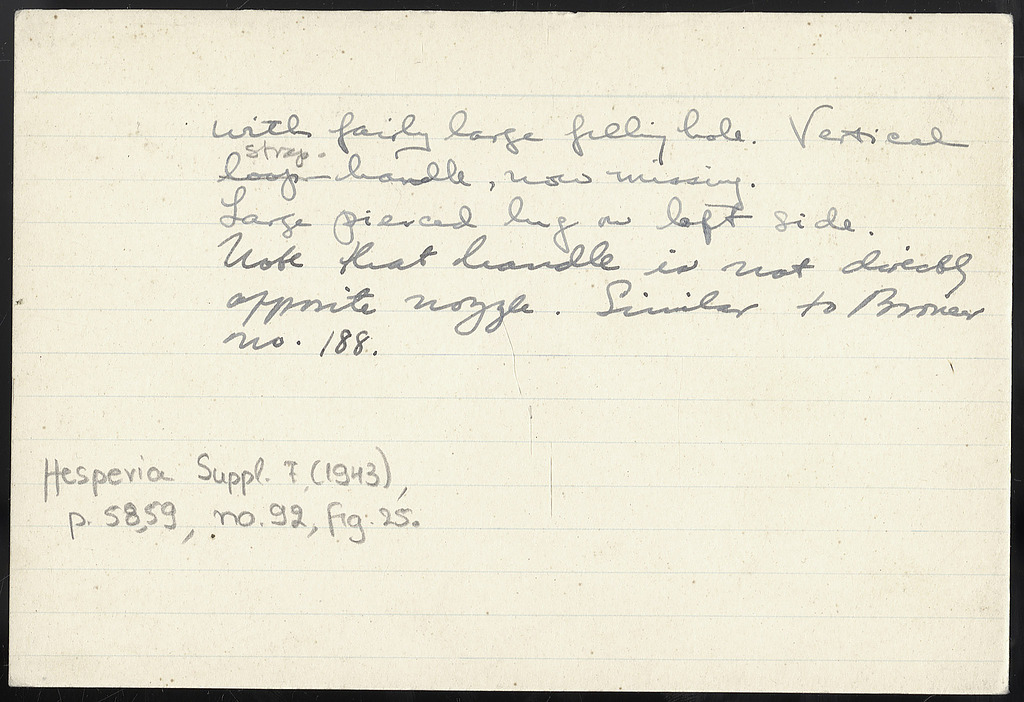 with fairly large filling hole. Vertical
strap.
loop handle, now missing.
Large pierced lug on left side.
Note that handle is not directly
opposite nozzle. Similar to Broneer
no. 188.
Hesperia Suppl. 7 (1943),
p. 58,59, no. 92, fig. 25.